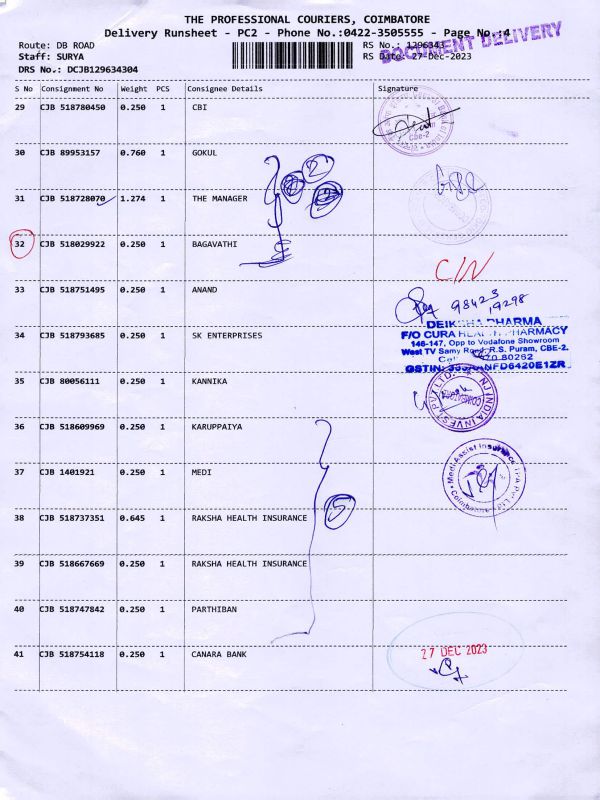 THE PROFESSIONAL COURIERS, COIMBATORE
Delivery Runsheet - PC2 - Phone No.:0422-3505555 - Page No.:4
DOCUMENT DELIVERY
Route: DB ROAD RS No.: 1296343
Staff: SURYA RS Date: 27-Dec-2023
DRS No.: DCJB129634304
S No Consignment No Weight PCS Consignee Details Signature
29 CJB 518780450 0.250 1 CBI
CBE-2
30 CJB 89953157 0.760 1 GOKUL
31 CJB 518728070 1.274 1 THE MANAGER
32 CJB 518029922 0.250 1 BAGAVATHI
C/N
33 CJB 518751495 0.250 1 ANAND
98423 19298
34 CJB 518793685 0.250 1 SK ENTERPRISES
DEIKSHA PHARMA
F/O CURA HEALTH PHARMACY
146-147, Opp to Vodafone Showroom
West TV Samy Road, R.S. Puram, CBE-2.
80262
35 CJB 80056111 0.250 1 KANNIKA
NJ INDIA INVEST PVT LTD.
COIMBATORE
36 CJB 518609969 0.250 1 KARUPPAIYA
37 CJB 1401921 0.250 1 MEDI
Medi Assist Insurance TPA Pvt Ltd
Coimbatore
38 CJB 518737351 0.645 1 RAKSHA HEALTH INSURANCE
5
39 CJB 518667669 0.250 1 RAKSHA HEALTH INSURANCE
40 CJB 518747842 0.250 1 PARTHIBAN
41 CJB 518754118 0.250 1 CANARA BANK
27 DEC 2023